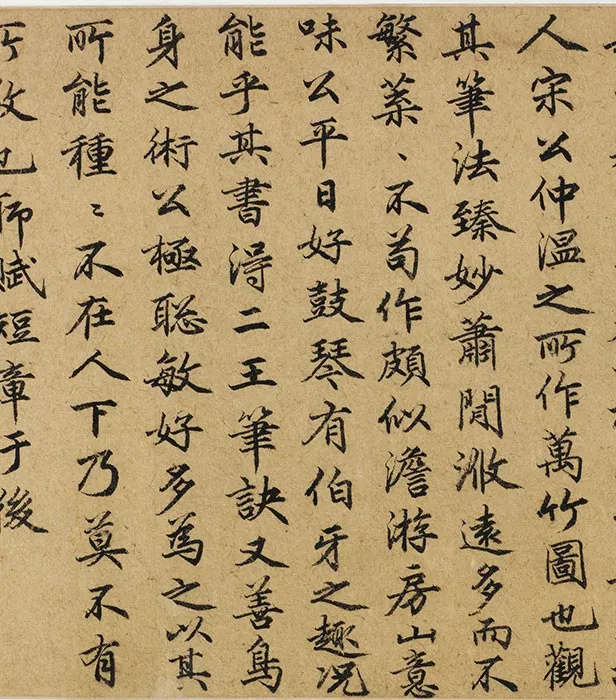 人宋公仲溫之所作萬竹圖也觀
其筆法臻妙蕭閒澉遠多而不
繁葉、不苟作頗似澹游房山意
味公平日好鼓琴有伯牙之趣况
能乎其書得二王筆訣又善鳥
身之術公極聡敏好多為之以其
所能種〻不在人下乃莫不有
所致也聊賦短章于後